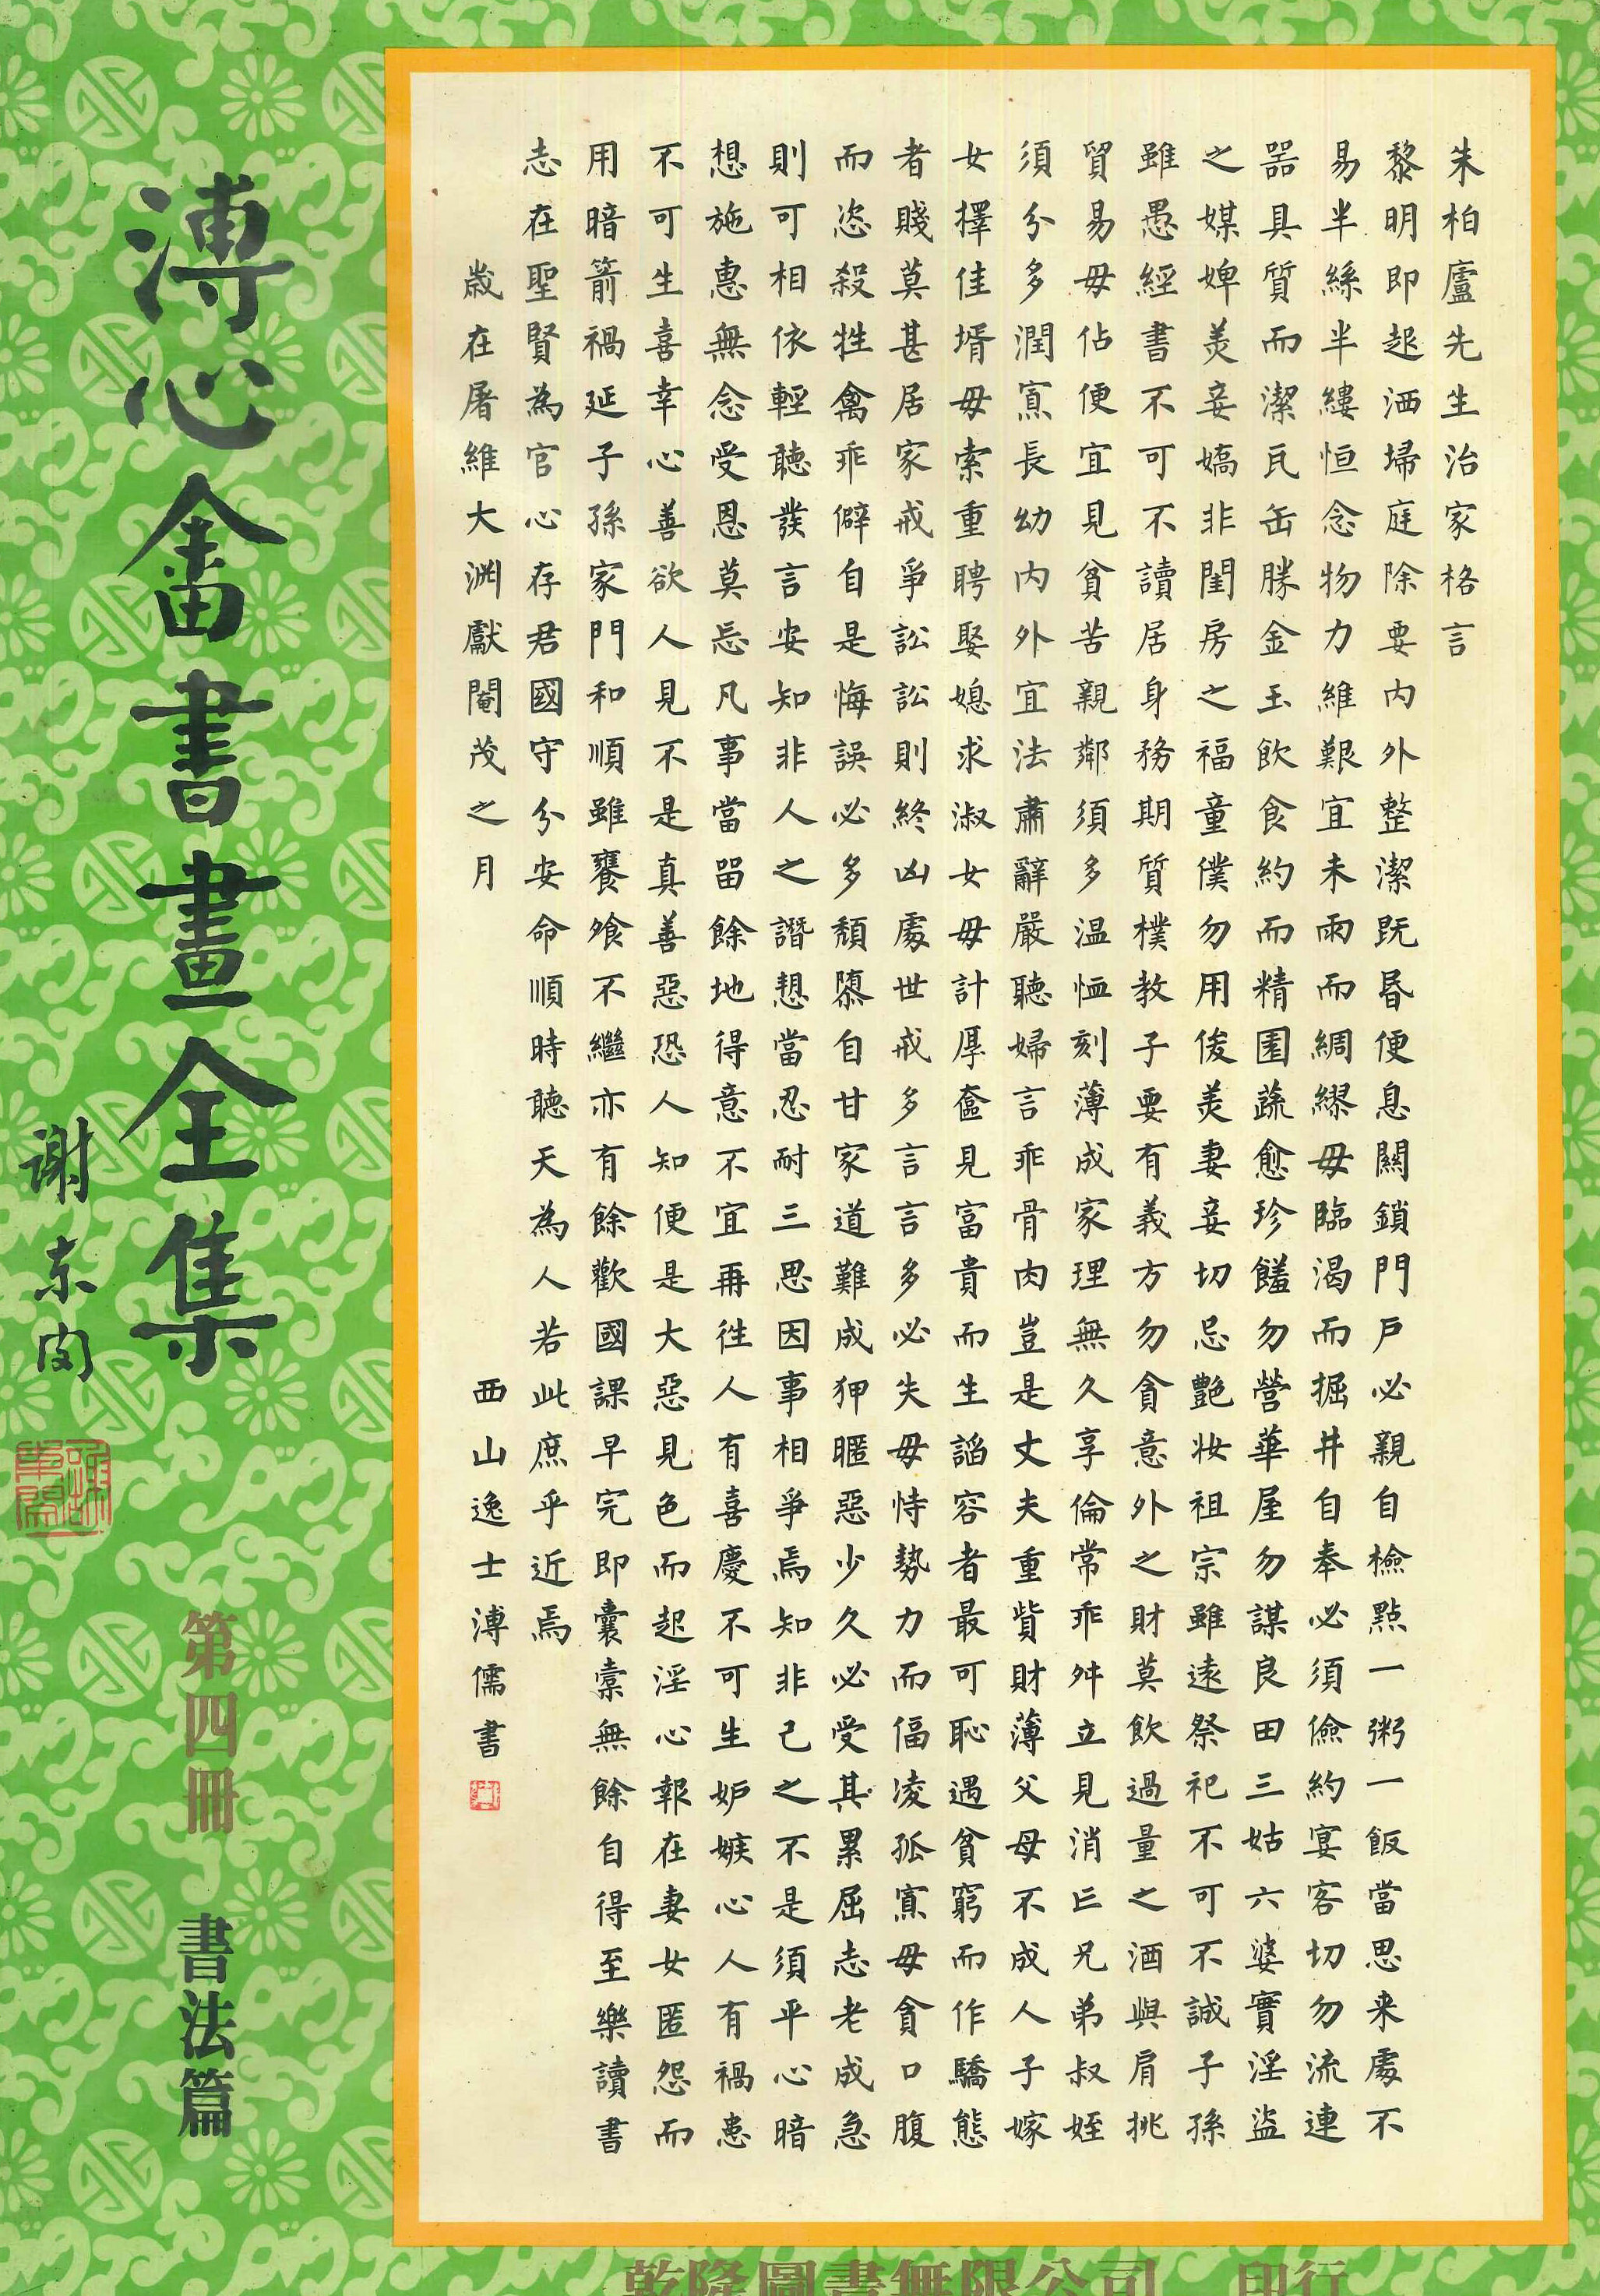 朱柏廬先生治家格言
黎明即起洒埽庭除要内外整潔既昏便息關鎖門戶必親自檢點一粥一飯當思来處不
易半絲半縷恒念物力維艱宜未雨而綢繆毋臨渴而掘井自奉必須儉約宴客切勿流連
器具質而潔瓦缶勝金玉飲食約而精園蔬愈珍饈勿營華屋勿謀良田三姑六婆實淫盜
之媒婢美妾嬌非閨房之福童僕勿用俊美妻妾切忌艷妝祖宗雖遠祭祀不可不誠子孫
雖愚經書不可不讀居身務期質樸教子要有義方勿貪意外之財莫飲過量之酒與肩挑
貿易毋佔便宜見貧苦親鄰須多温恤刻薄成家理無久享倫常乖舛立見消亡兄弟叔姪
須分多潤寡長幼内外宜法肅辭嚴聽婦言乖骨肉豈是丈夫重貲財薄父母不成人子嫁
女擇佳壻毋索重聘娶媳求淑女毋計厚奩見富貴而生諂容者最可恥遇貧窮而作驕態
者賤莫甚居家戒爭訟訟則終凶處世戒多言言多必失毋恃勢力而偪凌孤寡毋貪口腹
而恣殺牲禽乖僻自是悔誤必多頹隳自甘家道難成狎暱惡少久必受其累屈志老成急
則可相依輕聽發言安知非人之譖愬當忍耐三思因事相爭焉知非己之不是須平心暗
想施惠無念受恩莫忘凡事當留餘地得意不宜再往人有喜慶不可生妒嫉心人有禍患
不可生喜幸心善欲人見不是真善惡恐人知便是大惡見色而起淫心報在妻女匿怨而
用暗箭禍延子孫家門和順雖饔飧不繼亦有餘歡國課早完即囊橐無餘自得至樂讀書
志在聖賢為官心存君國守分安命順時聽天為人若此庶乎近焉
歲在屠維大淵獻閹茂之月
西山逸士溥儒書
溥心畬書畫全集
謝東閔
第四冊
書法篇
乾隆圖書無限公司 印行